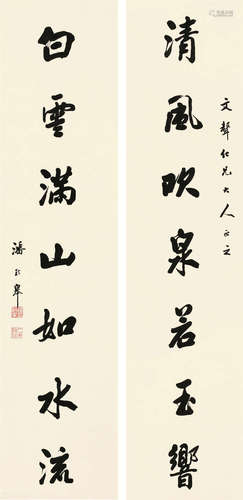 清風吹泉若玉響
文聲仁兄大人正之
白雲滿山如水流
潘齡皋